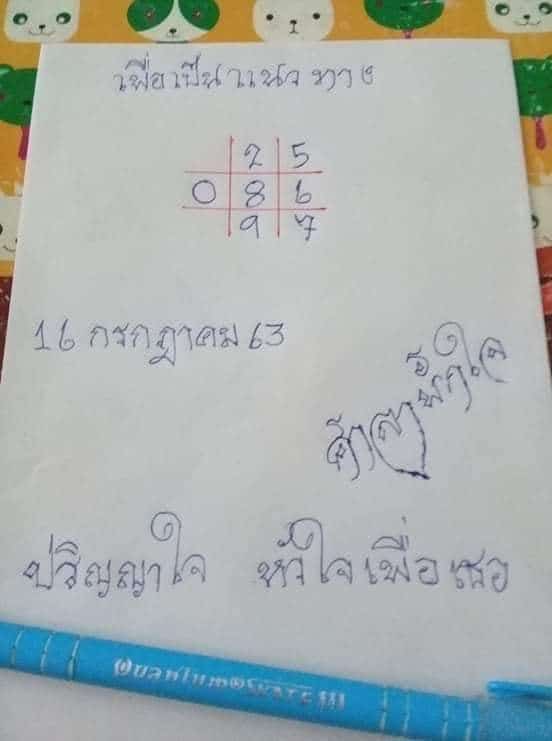 เพื่อเป็นแนวทาง
2 5
0 8 6
9 7
16 กรกฎาคม 63
ปริญญาใจ หัวใจเพื่อเธอ
Quantum SKATE 111